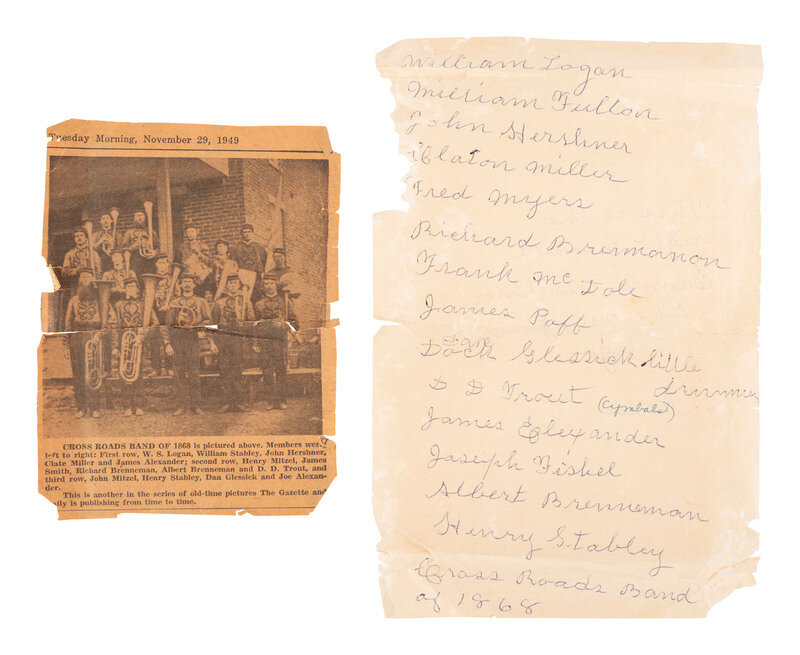 Tuesday Morning, November 29, 1949
CROSS ROADS BAND OF 1868 is pictured above. Members were,
left to right: First row, W. S. Logan, William Stabley, John Hershner,
Clate Miller and James Alexander; second row, Henry Mitzel, James
Smith, Richard Brenneman, Albert Brenneman and D. D. Trout, and
third row, John Mitzel, Henry Stabley, Dan Glessick and Joe Alexan-
der.
This is another in the series of old-time pictures The Gazette and
Daily is publishing from time to time.
William Logan
William Fulton
John Hershner
Claton Miller
Fred Myers
Richard Brennanon
Frank Mc Dole
James Poff
Dan
Dock Glessick little
drummer
D D Trout (Cymbals)
James Elexander
Jaseph Fiskel
Albert Brenneman
Henry Stabley
Cross Roads Band
of 1868